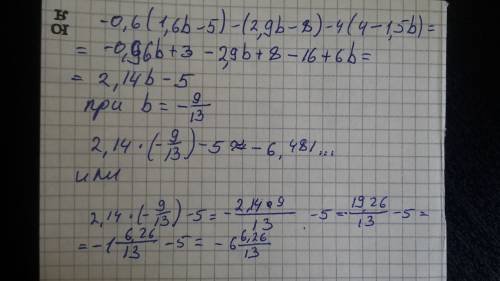 -0,6(1,6b-5)-(2,9b-8)-4(4-1,5b)=
= -0,96b+3 - 2,9b+8-16+6b=
= 2,14b-5
при b = -9/13
2,14·(-9/13)-5≈-6,481...
или
2,14·(-9/13)-5=-2,14·9/13 -5=-19,26/13-5=
=-1 6,26/13-5= -6 6,26/13